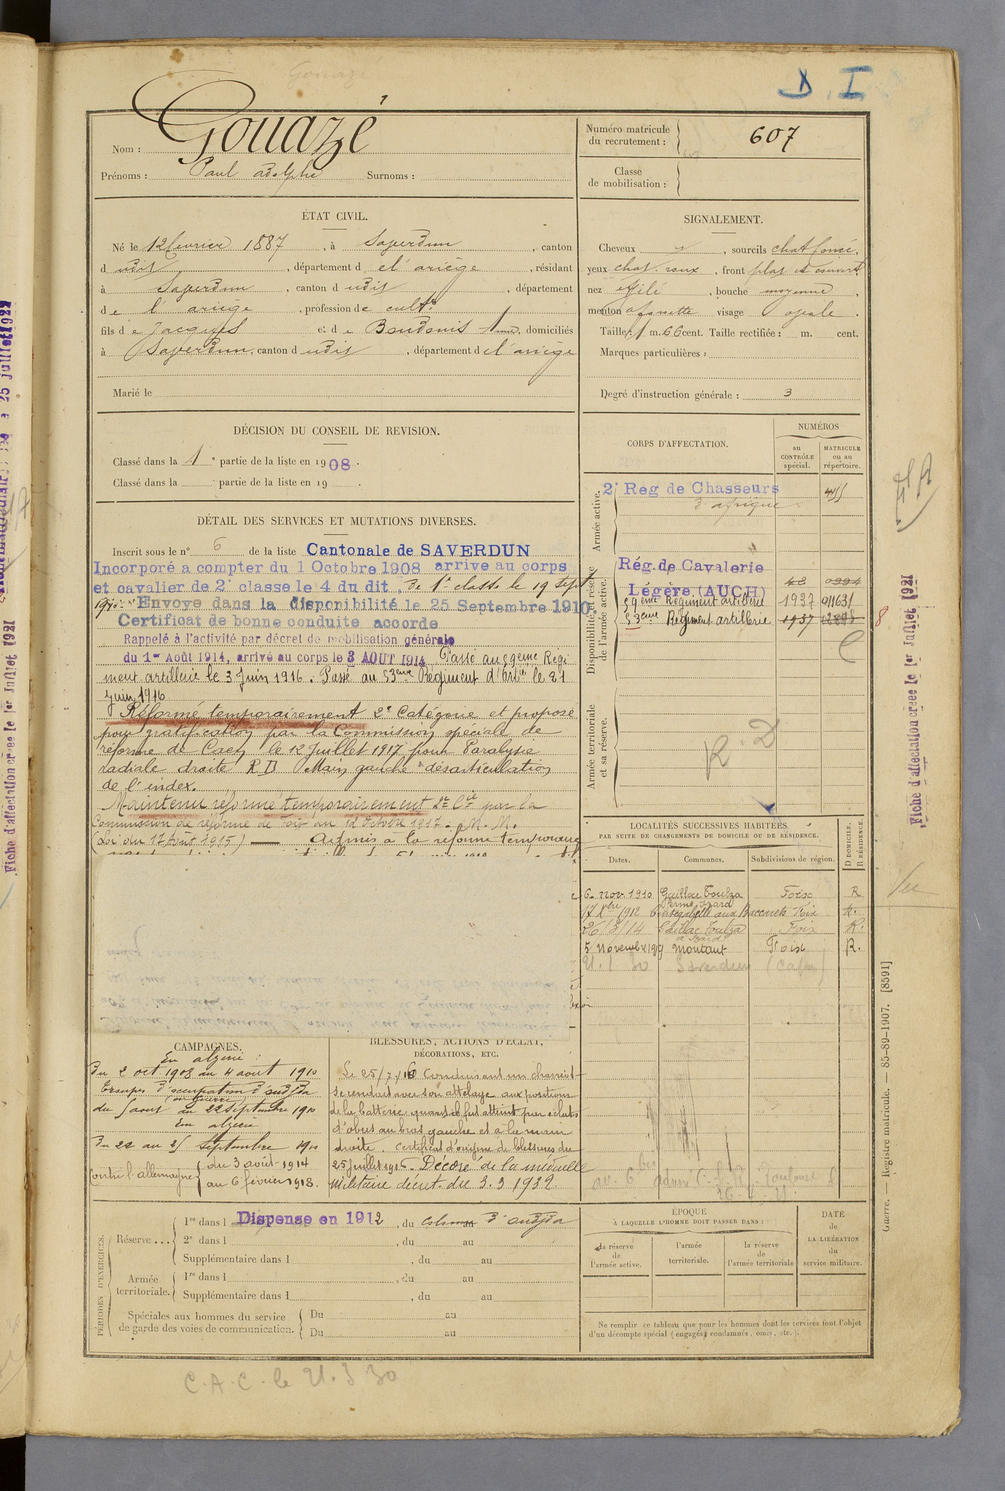 D. I.
Gouazé
Nom :
Prénoms : Paul adolphe Surnoms :
Numéro matricule du recrutement : 607
Classe de mobilisation :
ÉTAT CIVIL.
Né le 12 fevrier 1887, à Saverdun, canton
d udit, département d e l'ariège, résidant
à Saverdun, canton d udit, département
de l'ariège, profession de cultr
fils de Jacques et de Baudonis Anna, domiciliés
à Saverdun, canton d udit, département d e l'ariège
Marié le
SIGNALEMENT.
Cheveux, sourcils chat foncé,
yeux chat. roux, front plat et couvert
nez effilé, bouche moyenne,
menton visage ovale.
Taille : 1 m. 66 cent. Taille rectifiée : m. cent.
Marques particulières :
Degré d'instruction générale : 3
DÉCISION DU CONSEIL DE REVISION.
Classé dans la 1e partie de la liste en 1908.
Classé dans la partie de la liste en 19 .
DÉTAIL DES SERVICES ET MUTATIONS DIVERSES.
Inscrit sous le n° 6 de la liste Cantonale de SAVERDUN
Incorporé a compter du 1 Octobre 1908 arrive au corps
et cavalier de 2e classe le 4 du dit. De 1e classe le 19 Sept
1910. Envoye dans la disponibilité le 25 Septembre 1910.
Certificat de bonne conduite accorde
Rappelé à l'activité par décret de mobilisation générale
du 1er Août 1914, arrivé au corps le 3 AOUT 1914. Passé au 59eme Régi
ment artillerie le 3 Juin 1916. Passé au 53eme Régiment d'Artie le 21
Juin 1916
Réformé temporairement 2e Catégorie et proposé
pour gratification par la Commission speciale de
réforme de Caen le 12 Juillet 1917 pour Paralysie
radiale droite R D Main gauche désarticulation
de l'index.
Maintenu réformé temporairement 2e Cie par la
Commission de réforme de Foix du 12 octobre 1917.
(Loi du 17 Août 1915) Admis à la réforme temporaire
CORPS D'AFFECTATION.
NUMÉROS
au CONTRÔLE spécial.
MATRICULE ou au répertoire.
Armée active.
2e Reg de Chasseurs
d'afrique
Disponibilité et réserve de l'armée active.
Rég. de Cavalerie
Légère (AUCH)
59eme Régiment artillerie 1937 011631
53eme Régiment artillerie 1937
Armée territoriale et sa réserve.
R. D
LOCALITÉS SUCCESSIVES HABITÉES
PAR SUITE DE CHANGEMENTS DE DOMICILE OU DE RÉSIDENCE.
Dates. Communes. Subdivisions de région. D DOMICILE. R RÉSIDENCE.
6 nov. 1910 Gaillac Toulza Foix R
Foix R.
Gaillac Toulza Foix R.
5 Novembre 1919 Montaut Foix R.
21. 1 30 Saverdun
CAMPAGNES.
En algérie :
Du 2 oct 1908 au 4 aout 1910
Troupes d'occupation d'oudjda
(en guerre)
du 5 aout au 22 Septembre 1910
En algérie
Du 22 au 25 Septembre 1910
Contre l'allemagne { du 3 août 1914
au 6 février 1918.
BLESSURES, ACTIONS D'ÉCLAT,
DÉCORATIONS, ETC.
Le 25/7/16 Conduisant un chariot
se rendait avec son attelage aux positions
de la batterie quand il fut atteint par éclats
d'obus au bras gauche et a la main
droite. Certificat d'origine de blessures du
25 juillet 1916. Décoré de la médaille
militaire décret du 3.3 1932.
PÉRIODES D'EXERCICES.
Réserve . . . 1re dans l Dispense en 1912, du colonne d'oudjda
2e dans l , du au
Supplémentaire dans l , du au
Armée territoriale. 1re dans l , du au
Supplémentaire dans l , du au
Spéciales aux hommes du service de garde des voies de communication. Du au
Du au
ÉPOQUE
À LAQUELLE L'HOMME DOIT PASSER DANS :
la réserve de l'armée active.
l'armée territoriale.
la réserve de l'armée territoriale
DATE de LA LIBÉRATION du service militaire.
Ne remplir ce tableau que pour les hommes dont les services font l'objet
d'un décompte spécial (engagés, condamnés, omis, etc.).
C.A.C. le 21. 3 30
Fiche d'affectation créée le 1er Juillet 1921
Fiche d'affectation créée le 1er Juillet 1921
Guerre. — Registre matricule. — 85-89-1907. [8591]
Vu